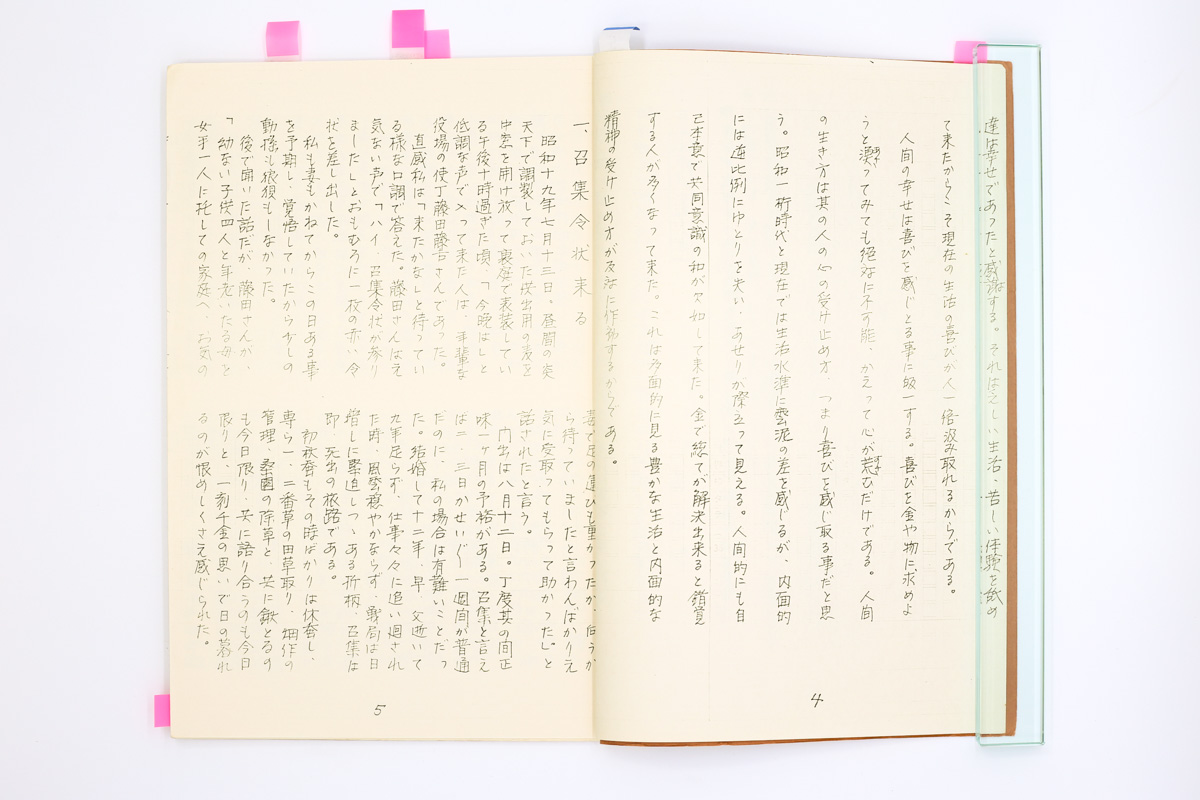 達は幸せであったと感謝する。それは乏しい生活、苦しい体験を舐め
て来たからこそ現在の生活の喜びが人一倍汲み取れるからである。
人間の幸せは喜びを感じとる事に帰一する。喜びを金や物に求めよ
うと漁ってみても絶対に不可能、かえって心が荒むだけである。人間
の生き方は其の人の心の受け止め方、つまり喜びを感じ取る事だと思
う。昭和一桁時代と現在では生活水準に雲泥の差を感じるが、内面的
には逆比例にゆとりを失い、あせりが際立って見える。人間的にも自
己本意で共同意識の和が欠如して来た。金で総てが解決出来ると錯覚
する人が多くなって来た。これは多面的に見る豊かな生活と内面的な
精神の受け止め方が反対に作動するからである。
4
一、召集令状来る
昭和十九年七月十三日。昼間の炎
天下で調製しておいた供出用の麦を
中窓を開け放って裏庭で表装してい
る午後十時過ぎた頃、「今晩は」と
低調な声で入って来た人は、年輩な
役場の使丁藤田藤吉さんであった。
直感私は「来たかな」と待ってい
る様な口調で答えた。藤田さんはえ
気ない声で「ハイ、召集令状が参り
ました」とおもむろに一枚の赤い令
状を差し出した。
私も妻もかねてからこの日ある事
を予期し、覚悟していたから少しの
動揺も狼狽もしなかった。
後で聞いた話だが、藤田さんが、
「幼ない子供四人と年老いたる母と
女手一人に托しての家庭へ、お気の
毒で足の運びも重かったが、向うか
ら待っていましたと言わんばかりえ
気に受取ってもらって助かった。」と
話されたと言う。
門出は八月十二日。丁度其の間正
味一ヶ月の予裕がある。召集と言え
ば二、三日かせいぐ一週間が普通
だのに、私の場合は有難いことだっ
た。結婚して十二年、早父逝いて
九年足らず、仕事々々に追い廻され
た時、風雲穏やかならず、戦局は日
増しに緊迫しつゝある折柄、召集は
即、死出の旅路である。
初秋蚕もその時ばかりは休蚕し、
専ら一、二番草の田草取り、畑作の
管理、桑園の除草と、共に鍬とるの
も今日限り、共に語り合うのも今日
限りと、一刻千金の思いで日の暮れ
るのが恨めしくさえ感じられた。
5